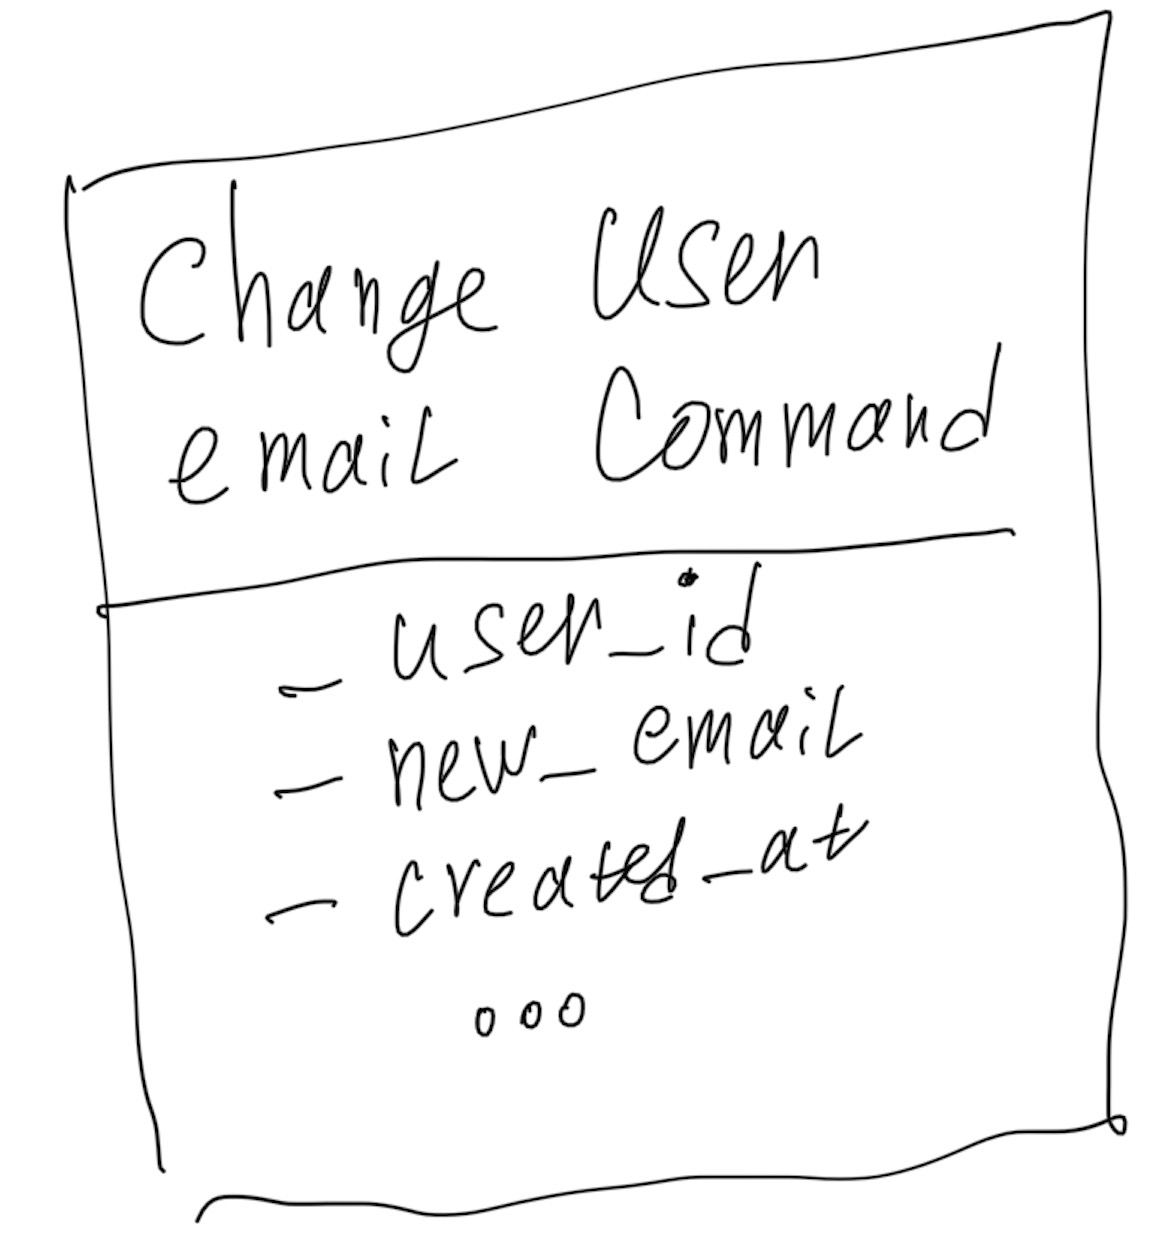 Change User
email Command
- user_id
- new_email
- created_at
...